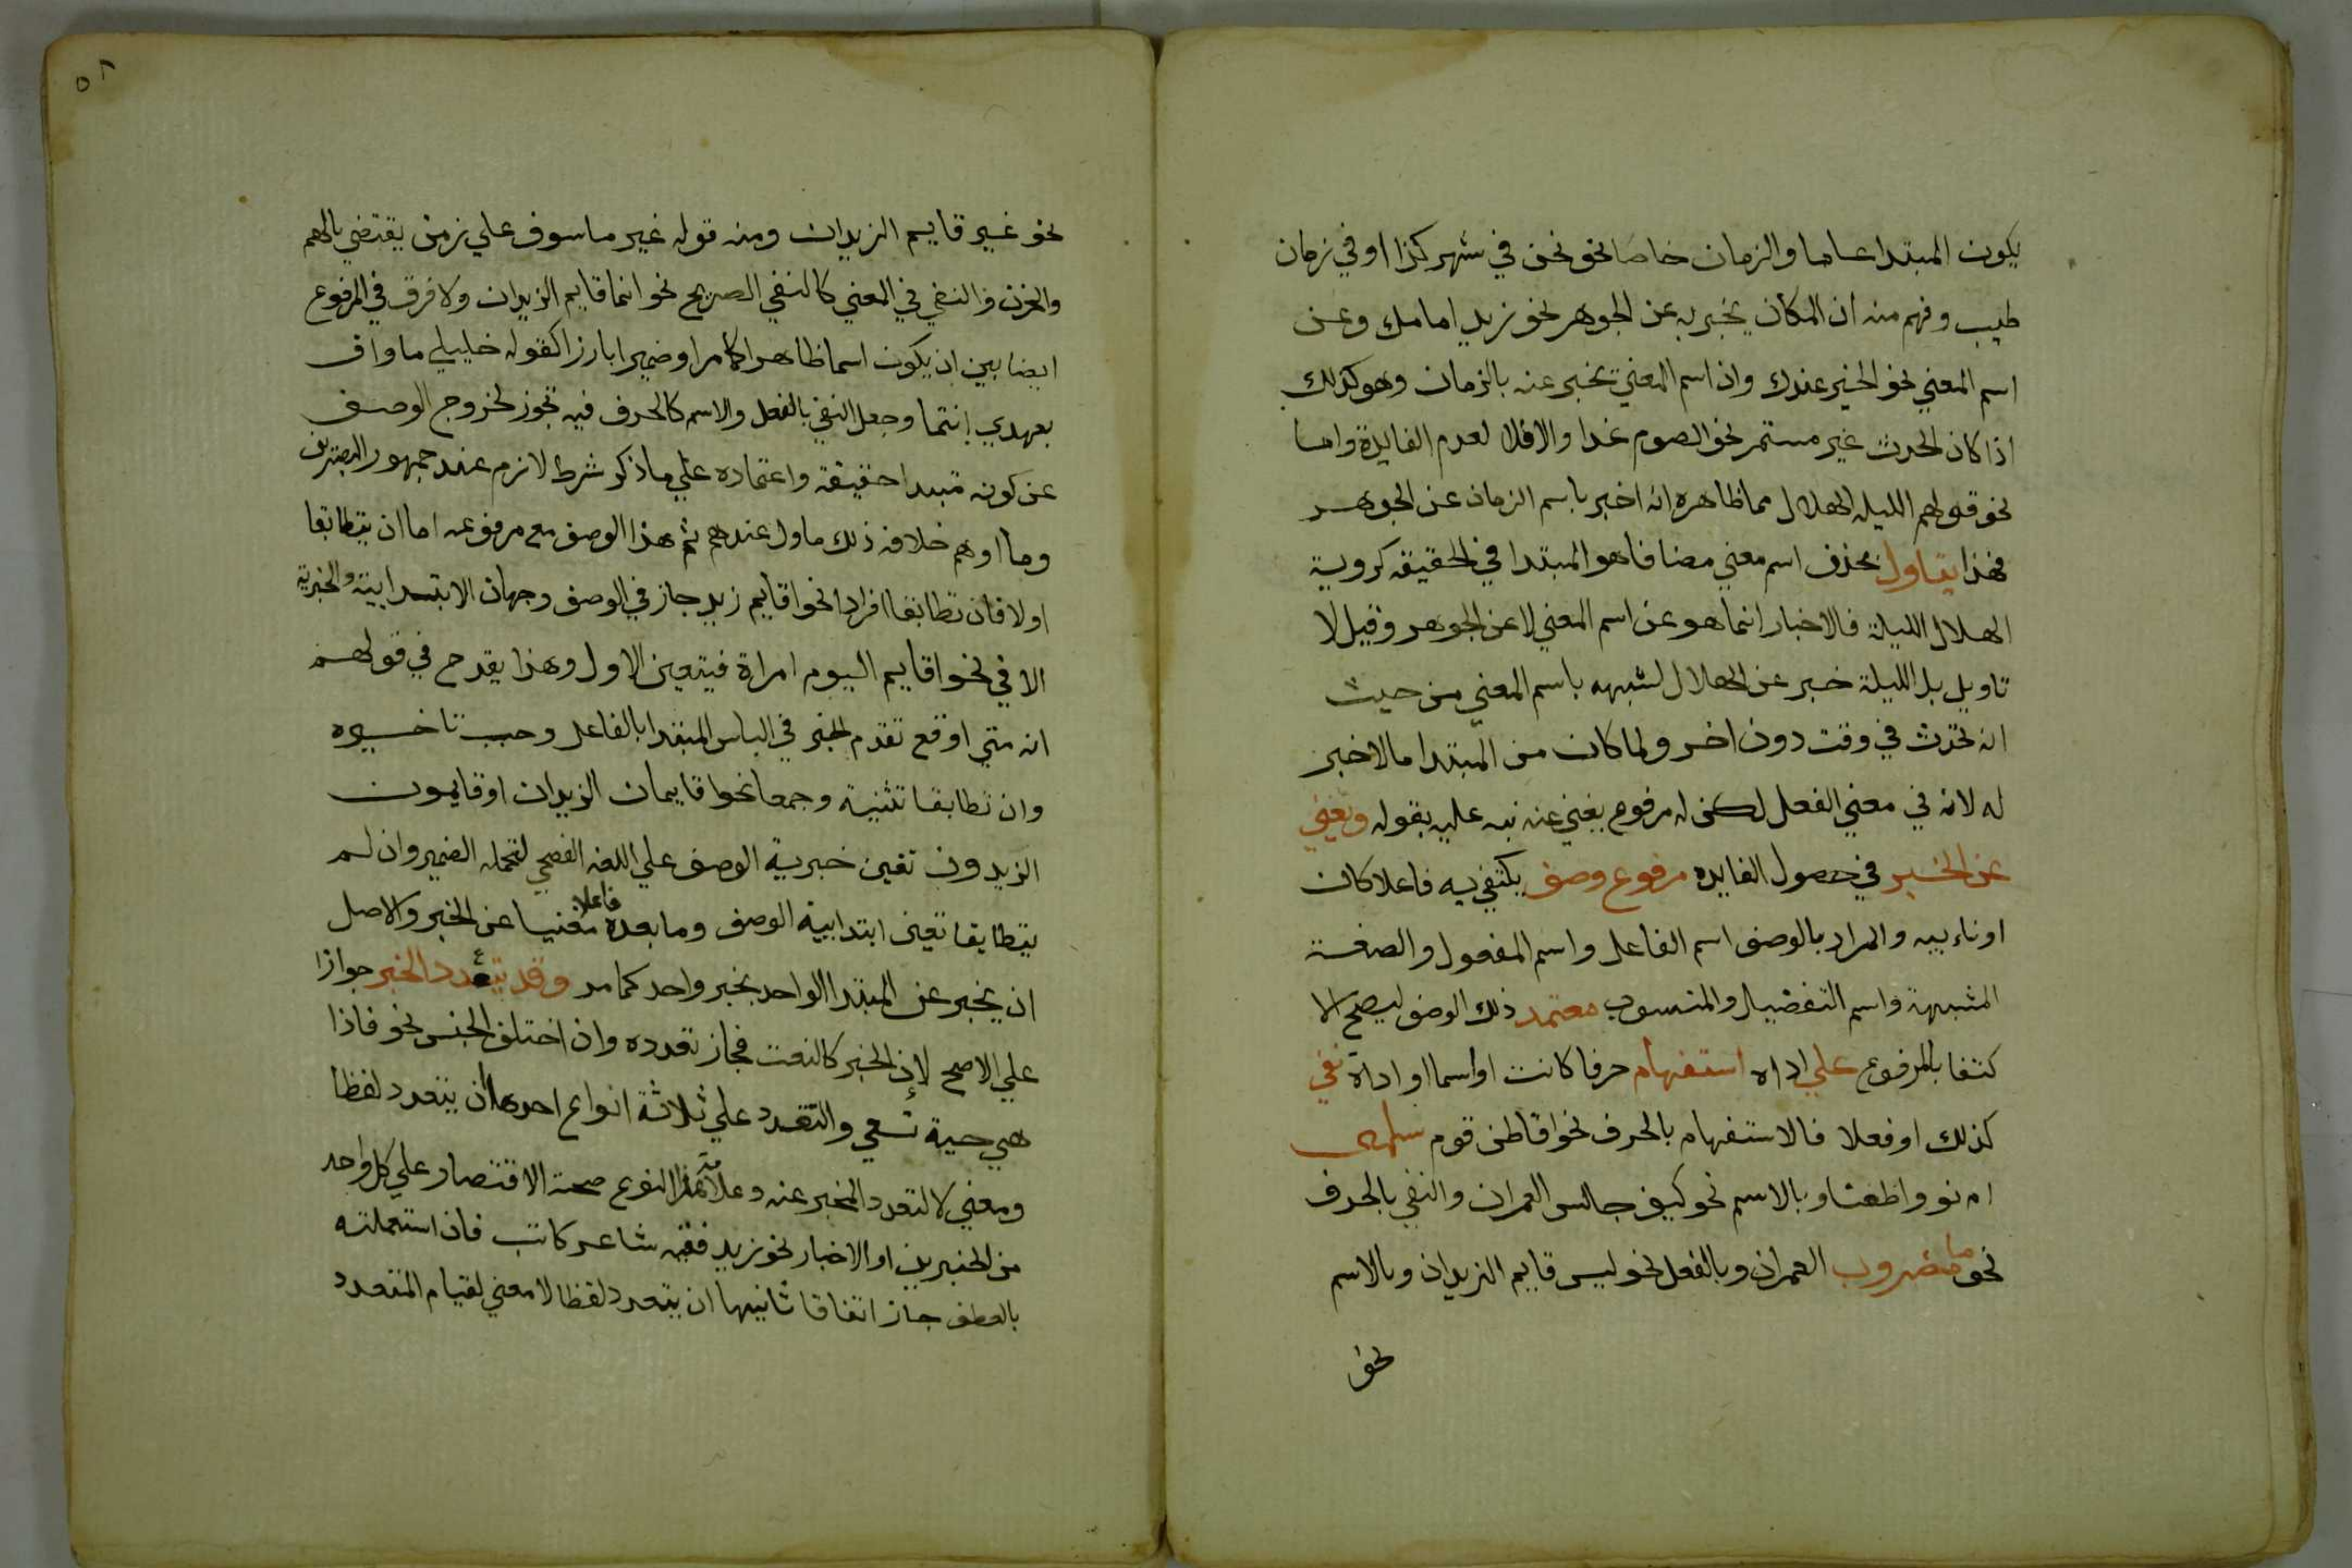 يكون المبتدا عاما والزمان خاصا نحو نحن في شهر كذا او في زمان
طيب وفهم منه ان المكان يخبر به عن الجوهر نحو زيد امامك وعن
اسم المعني نحو الخير عندك وان اسم المعني يخبر عنه بالزمان وهو كذلك
اذا كان الحدث غير مستمر نحو الصوم غدا والا فلا لعدم الفايدة واما
نحو قولهم الليله الهلال مما ظاهره انه اخبر باسم الزمان عن الجوهر
فهذا يتاول بحذف اسم معني مضافا هو المبتدا في الحقيقه كروية
الهلال الليلة فالاخبار انما هو عن اسم المعني لا عن الجوهر وقيل لا
تاويل بل الليلة خبر عن الهلال لشبهه باسم المعني من حيث
انه يحدث في وقت دون اخر ولما كان من المبتدا ما لا خبر
له لانه في معني الفعل لكن له مرفوع يغني عنه نبه عليه بقوله ويغني
عن الخبر في حصول الفايده مرفوع وصف يكتفي به فاعلا كان
او نايبه والمراد بالوصف اسم الفاعل واسم المفعول والصفة
المشبهة واسم التفضيل والمنسوب معتمد ذلك الوصف ليصح الا
كتفا بالمرفوع علي اداه استفهام حرفا كانت او اسما او اداة نفي
كذلك او فعلا فالاستفهام بالحرف نحو اقاطن قوم سلمى
ام نووا ظعنا وبالاسم نحو كيف جالس العمران والنفي بالحرف
نحو ما مضروب العمران وبالفعل نحو ليس قايم الزيدان وبالاسم
نحو
٥٨
نحو غير قايم الزيدان ومنه قوله غير ماسوف علي زمن يقتضي بالهم
والحزن والنفي في المعني كالنفي الصريح نحو انما قايم الزيدان ولا فرق في المرفوع
ايضا بين ان يكون اسما ظاهرا كما مر او ضميرا بارزا كقوله خليلي ما واف
بعهدي انتما وجعل النفي بالفعل والاسم كالحرف فيه تجوز لخروج الوصف
عن كونه مبتدا حقيقة واعتماده علي ما ذكر شرط لازم عند جمهور البصريين
وما اوهم خلافه ذلك ماول عندهم ثم هذا الوصف مع مرفوعه اما ان يتطابقا
او لا فان تطابقا افرادا نحو اقايم زيد جاز في الوصف وجهان الابتدايية والخبرية
الا في نحو اقايم اليوم امراة فيتعين الاول وهذا يقدح في قولهم
انه متي اوقع تقدم الخبر في الباس المبتدا بالفاعل وجب تاخيره
وان تطابقا تثنية وجمعا نحو اقايمان الزيدان او قايمون
الزيدون تعين خبرية الوصف علي اللغه الفصحي لتحمله الضمير وان لم
يتطابقا تعين ابتدايية الوصف وما بعده فاعلا مغنيا عن الخبر والاصل
ان يخبر عن المبتدا الواحد بخبر واحد كما مر وقد يتعدد الخبر جوازا
علي الاصح لان الخبر كالنعت فجاز تعدده وان اختلف الجنس نحو فاذا
هي حية تسعي والتعدد علي ثلاثة انواع احدها ان يتعدد لفظا
ومعني لا لتعدد المخبر عنه وعلامة هذا النوع صحة الاقتصار علي كل واحد
من الخبرين او الاخبار نحو زيد فقيه شاعر كاتب فان استعملته
بالعطف جاز اتفاقا ثانيها ان يتعدد لفظا لا معني لقيام المتعدد